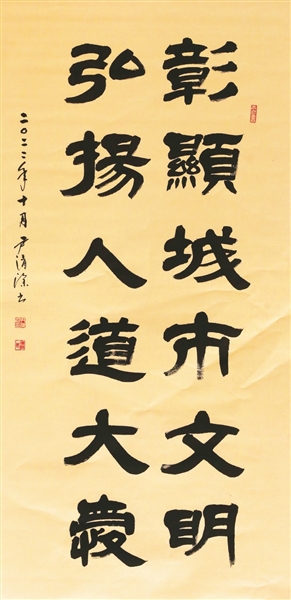 彰顯城市文明
弘揚人道大愛
二〇二二年十月尹清滦书